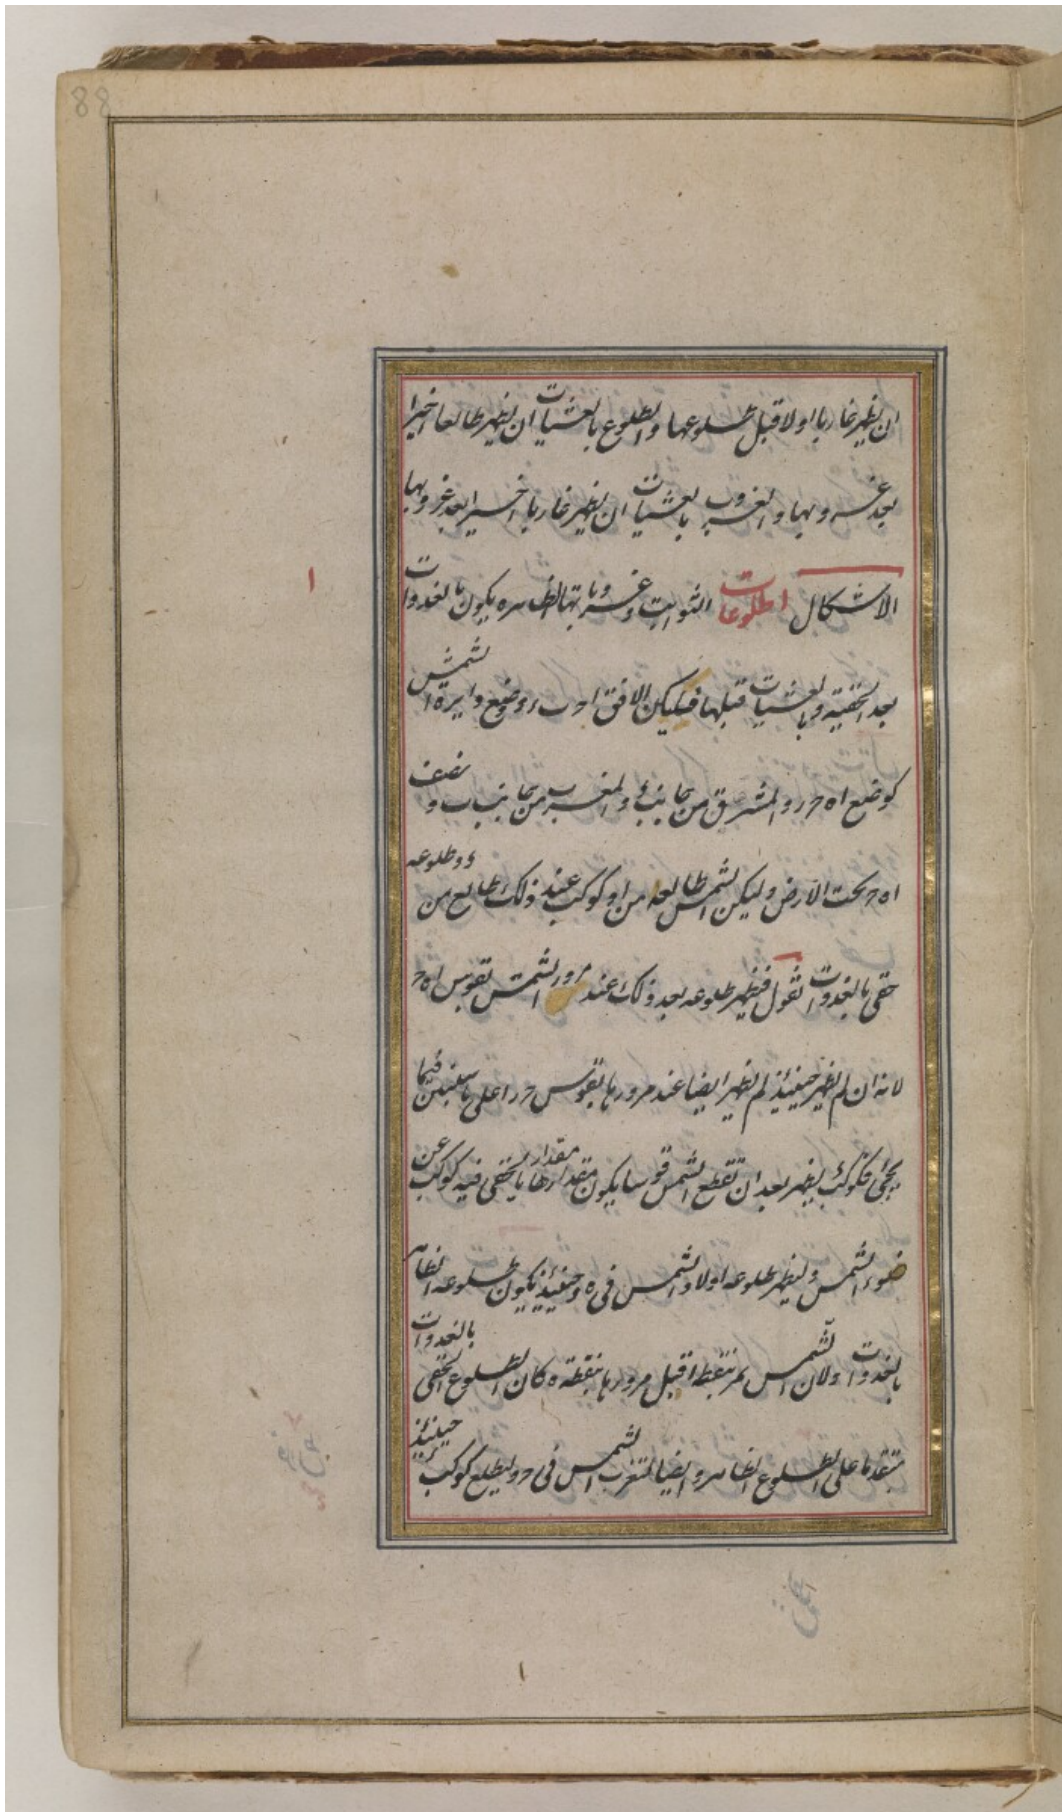 88
ان يظهر غاربا اولا قبل طلوعها والطلوع بالعشيات ان يظهر طالعا اخيرا
بعد غروبها والغروب بالعشيات ان يظهر غاربا اخيرا بعد غروبها
الاشكال ا طلوعات الثوابت وغروباتها الظاهره يكون بالغدوات
ا
بعد الخفية وبالعشيات قبلها فليكن الافق ا د ب ء ووضع دايرة الشمس
كوضع ا ه ح ر والمشرق من جانب ء والمغرب من جانب ب ونصف
ا ه ح تحت الارض وليكن الشمس طالعه من ا وكوكب عند ذلك طالع من ء وطلوعه
خفى بالغدوات نقول فيظهر طلوعه بعد ذلك عند مرور الشمس بقوس ا ه ح
لانه ان لم يظهر حينئذ لم يظهر ايضا عند مرورها بقوس ح ر ا على ما سنبين فيما
يجئ فكوكب ء يظهر بعد ان تقطع الشمس قوسا يكون مقدارها مقدار ما يختفى فيه كوكب ء عن
ضوء الشمس وليظهر طلوعه اولا والشمس فى ه وحينئذ يكون طلوعه الظاهر
بالغدوات ولان الشمس تمر بنقطة ا قبل مرورها بنقطة ه كان الطلوع الخفى بالغدوات
متقدما على الطلوع الظاهر وايضا لتغرب الشمس فى ح وليطلع كوكب ء حينئذ